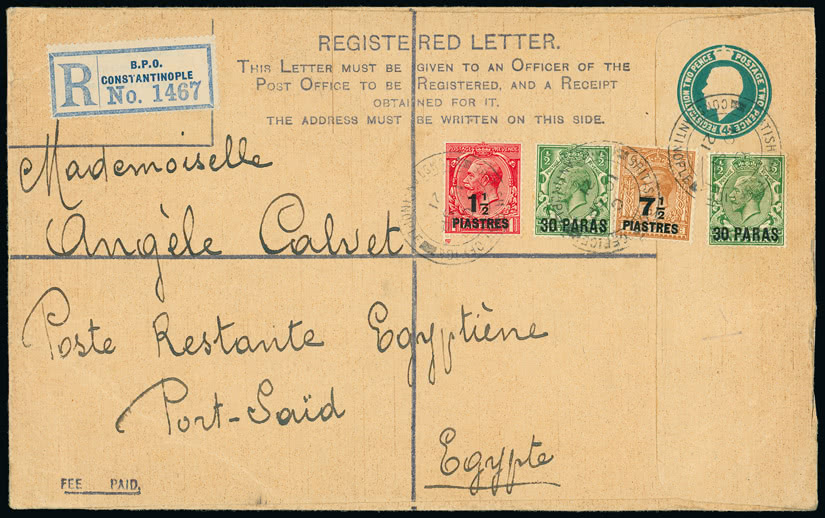 B.P.O.
CONSTANTINOPLE
R No. 1467
REGISTERED LETTER.
THIS LETTER MUST BE GIVEN TO AN OFFICER OF THE
POST OFFICE TO BE REGISTERED, AND A RECEIPT
OBTAINED FOR IT.
THE ADDRESS MUST BE WRITTEN ON THIS SIDE.
REGISTRATION TWO PENCE POSTAGE TWO PENCE
Mademoiselle
Angèle Calvet
POSTAGE REVENUE
1½
PIASTRES
½
30 PARAS
7½
PIASTRES
½
30 PARAS
21
Poste Restante Egyptiène
Port-Saïd
Egypte
FEE PAID.